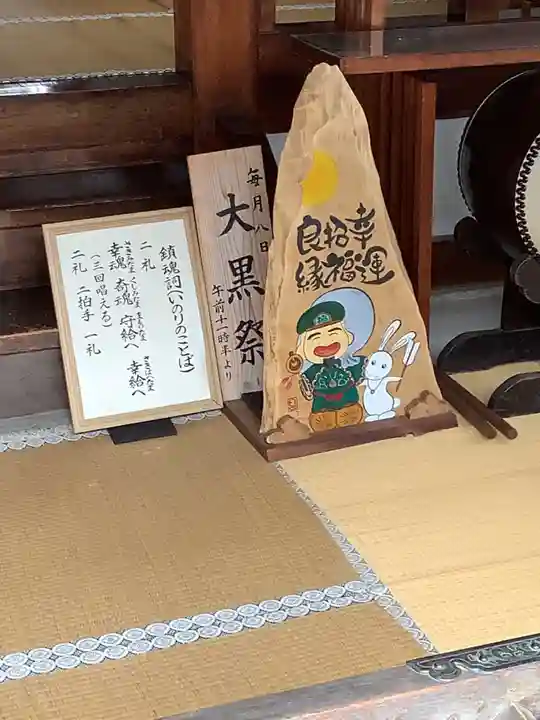 幸運
招福
良縁
毎月八日
大黒祭
午前十一時半より
鎮魂詞(いのりのことば)
二礼
幸魂 奇魂 守給へ 幸給へ
(三回唱える)
二礼 二拍手 一礼